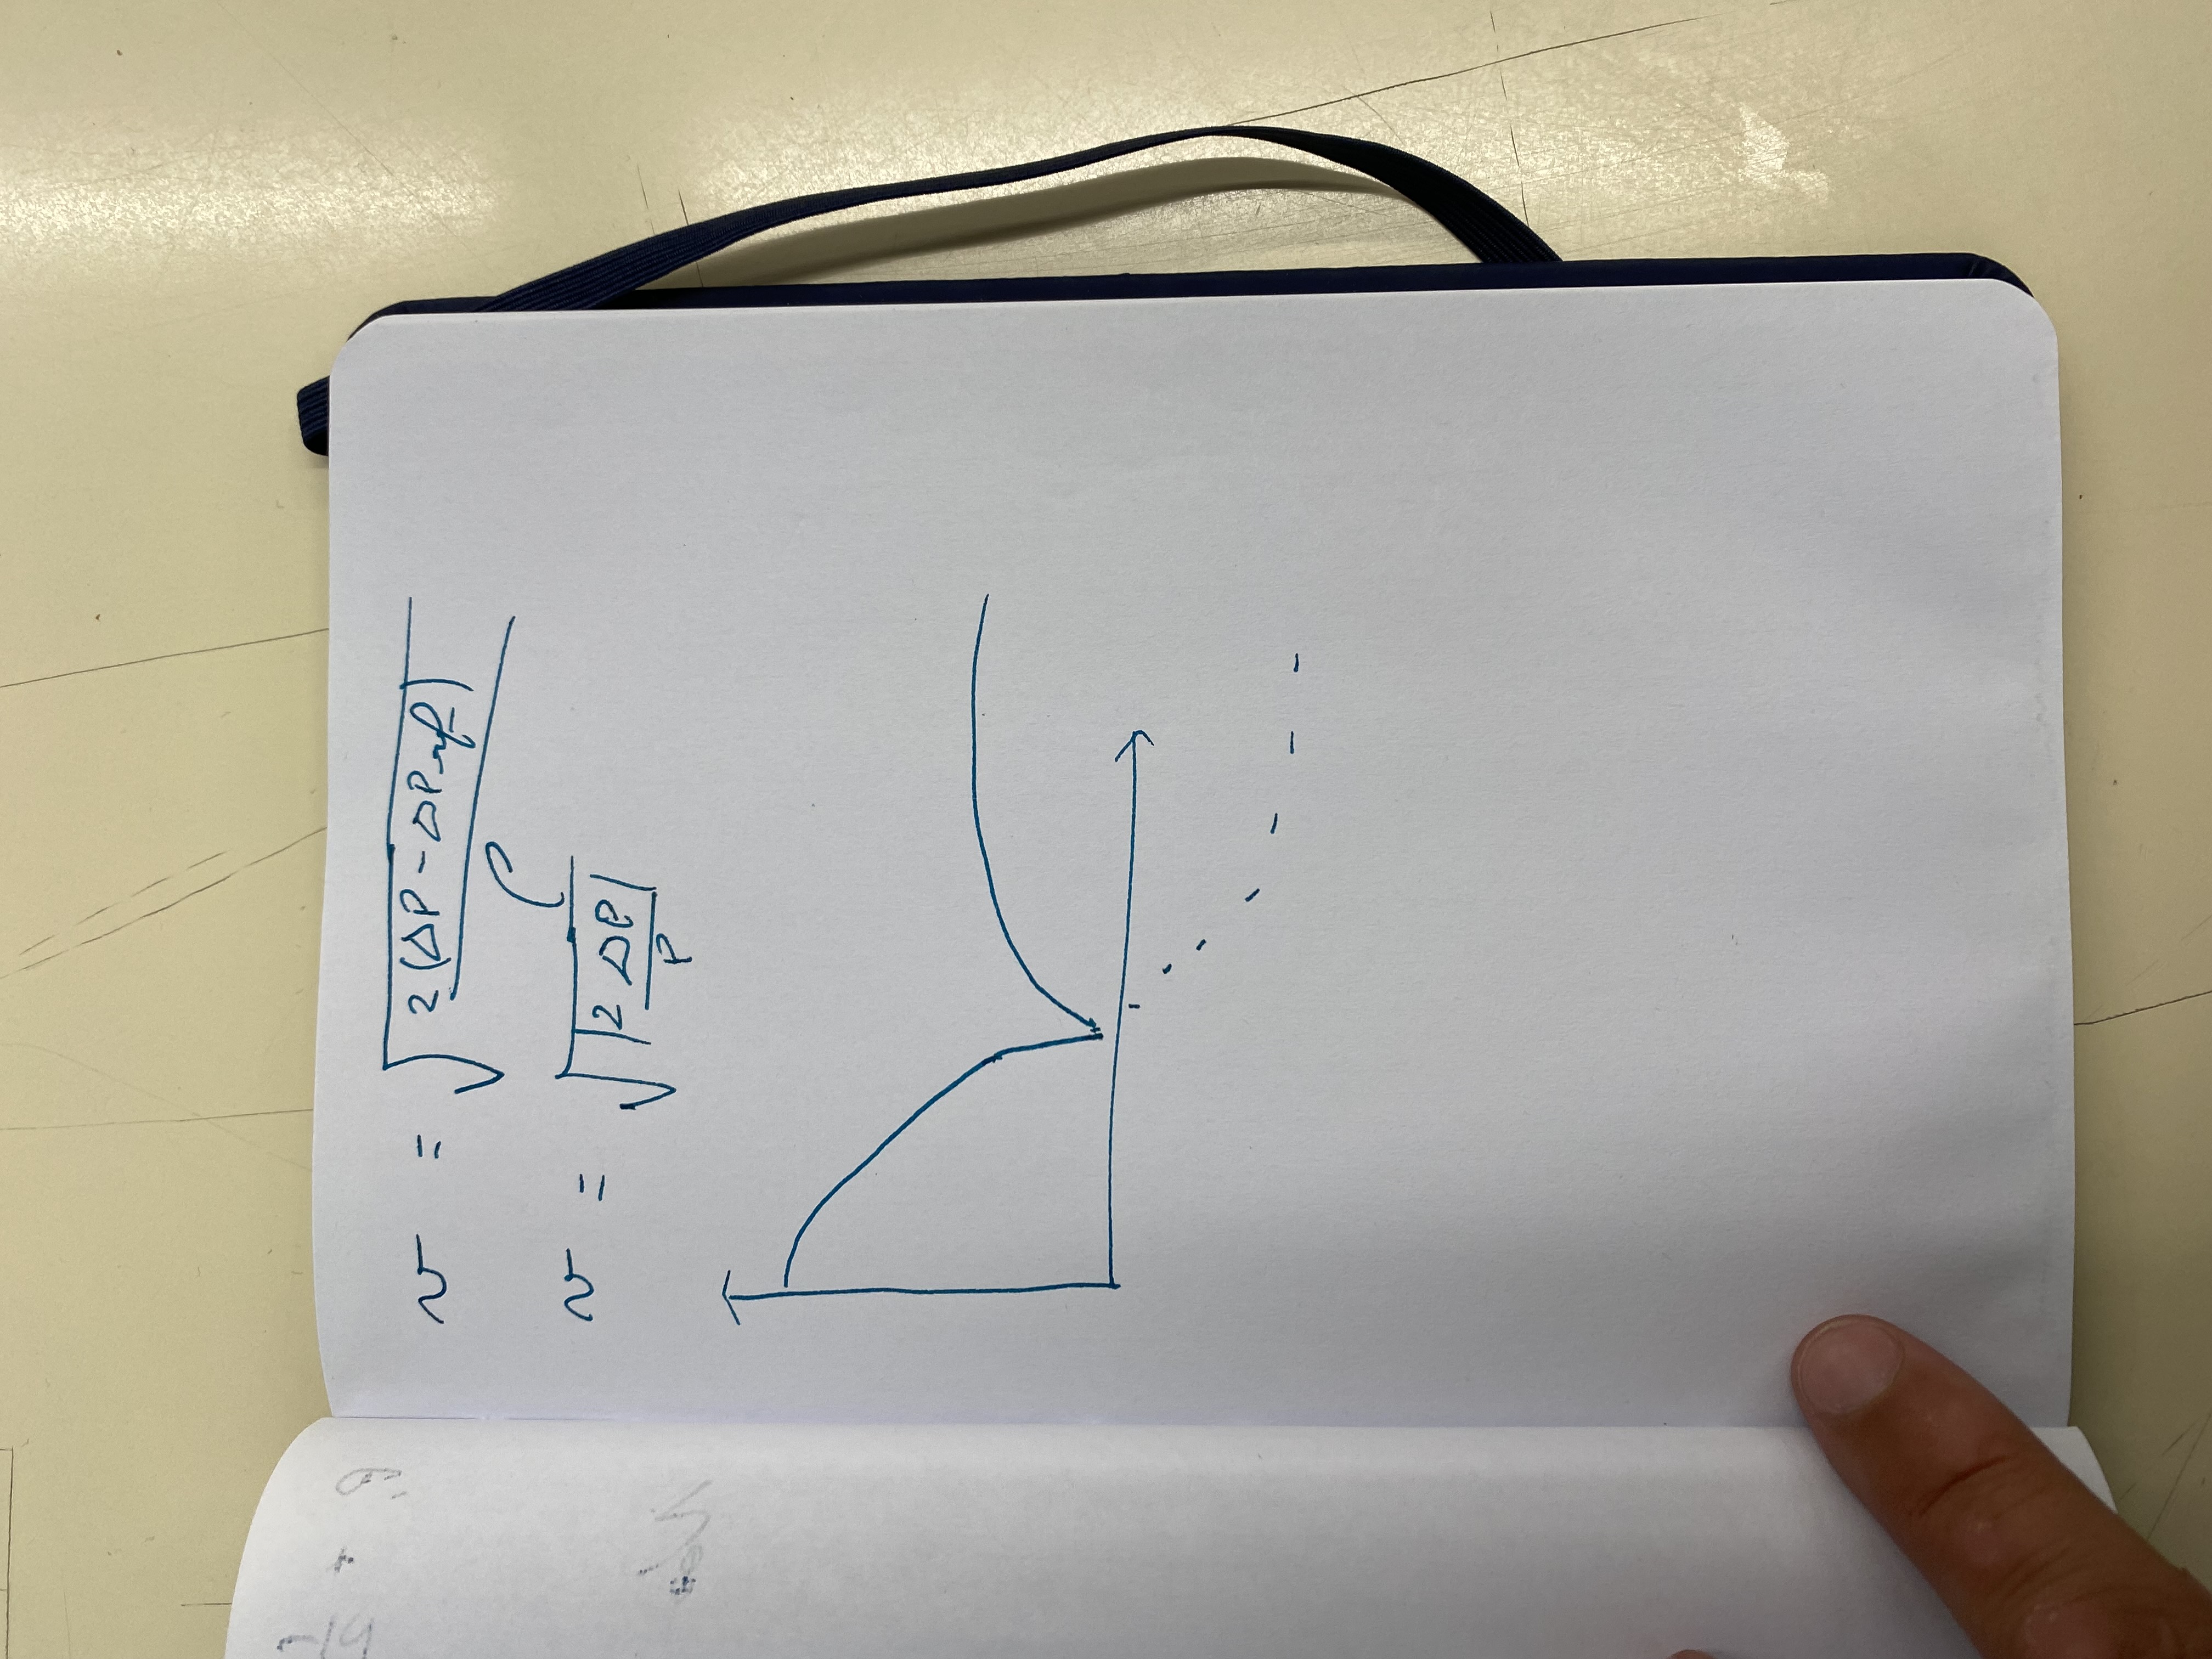 v = √(2(ΔP - ΔPref) / ρ)
v = √|2 ΔP / ρ|